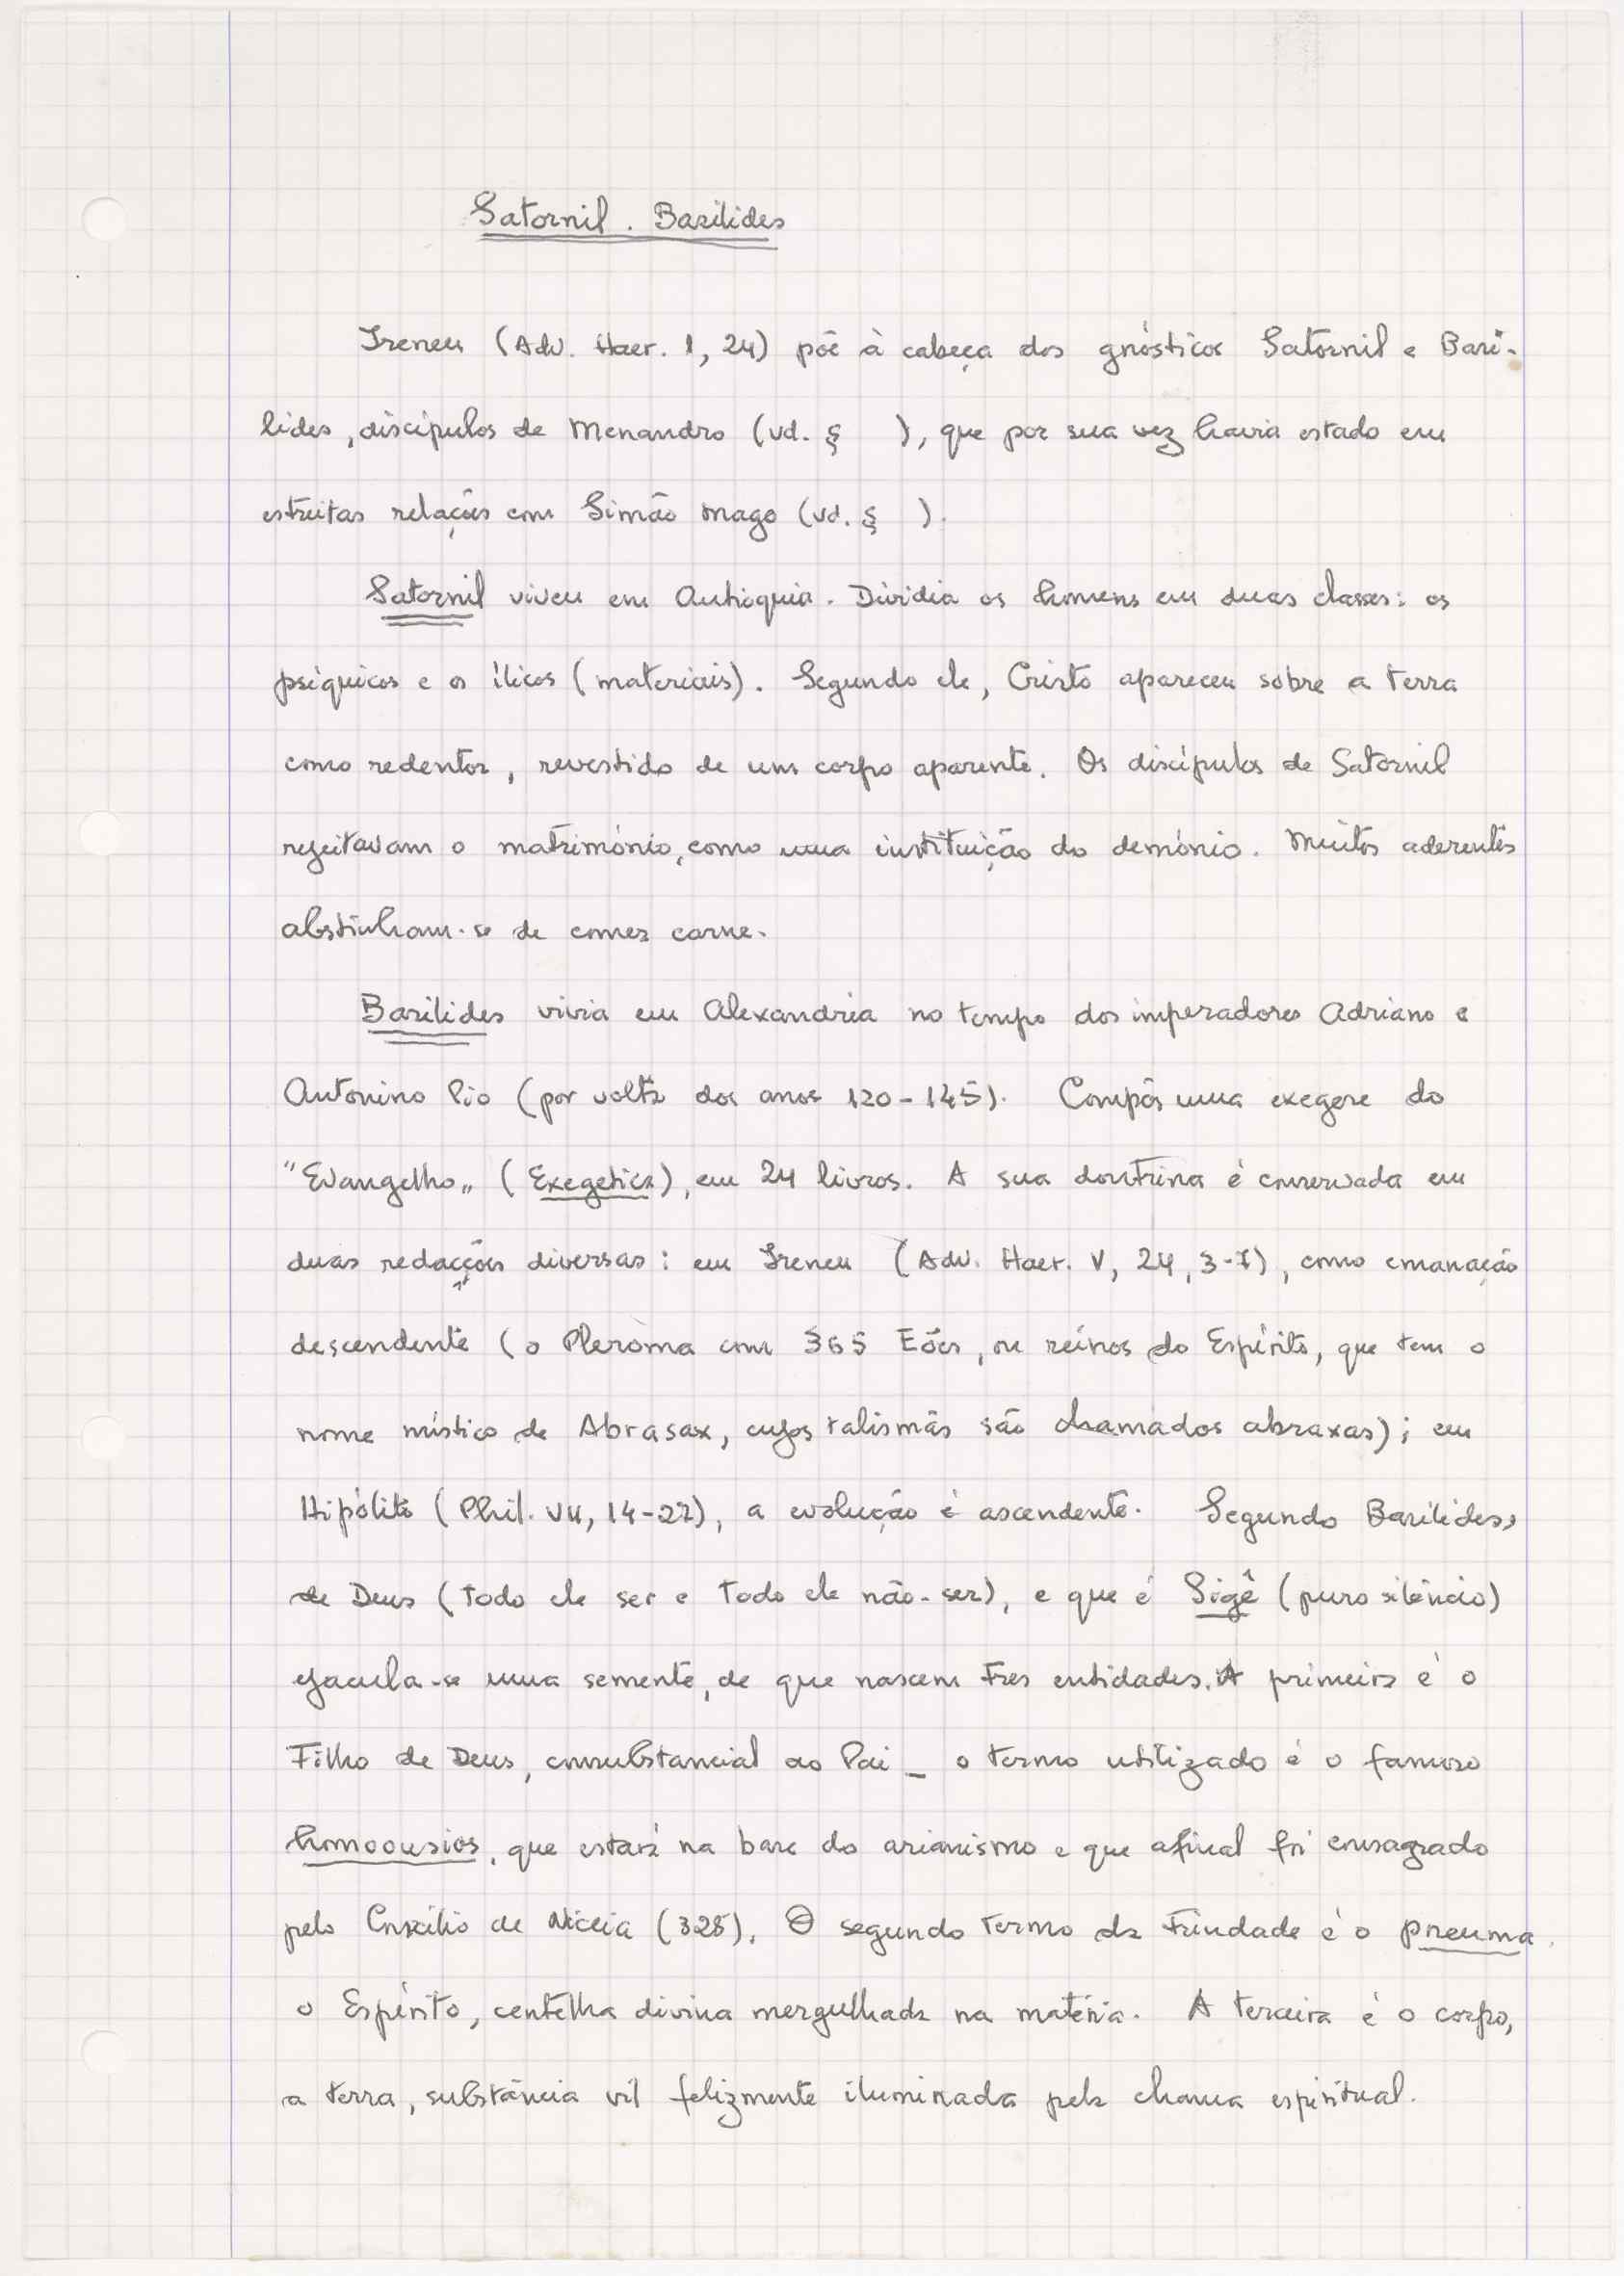 Satornil. Basílides
Ireneu (Adv. Haer. I, 24) põe à cabeça dos gnósticos Satornil e Basí-
lides, discípulos de Menandro (vd. § ), que por sua vez havia estado em
estreitas relações com Simão Mago (vd. § ).
Satornil viveu em Antioquia. Dividia os homens em duas classes: os
psíquicos e os ílicos (materiais). Segundo ele, Cristo apareceu sobre a terra
como redentor, revestido de um corpo aparente. Os discípulos de Satornil
rejeitavam o matrimónio, como uma instituição do demónio. Muitos aderentes
abstinham-se de comer carne.
Basílides vivia em Alexandria no tempo dos imperadores Adriano e
Antonino Pio (por volta dos anos 120-145). Compôs uma exegese do
"Evangelho" (Exegetica), em 24 livros. A sua doutrina é conservada em
duas redacções diversas: em Ireneu (Adv. Haer. V, 24, 3-7), como emanação
descendente (o Pleroma com 365 Eões, ou reinos do Espírito, que tem o
nome místico de Abrasax, cujos talismãs são chamados abraxas); em
Hipólito (Phil. VII, 14-27), a evolução é ascendente. Segundo Basílides,
de Deus (todo ele ser e todo ele não-ser), e que é Sigê (puro silêncio)
ejacula-se uma semente, de que nascem tres entidades. A primeira é o
Filho de Deus, consubstancial ao Pai - o termo utilizado é o famoso
homoousios, que estará na base do arianismo e que afinal foi consagrado
pelo Concílio de Niceia (325). O segundo termo da Trindade é o pneuma,
o Espírito, centelha divina mergulhada na matéria. A terceira é o corpo,
a terra, substância vil felizmente iluminada pela chama espiritual.